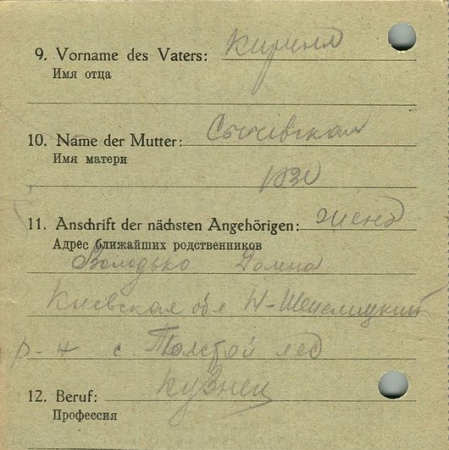 9. Vorname des Vaters: Кирилл
Имя отца
10. Name der Mutter: Сычевская
Имя матери
11. Anschrift der nächsten Angehörigen: жена
Адрес ближайших родственников
Володько Домна
Киевская обл
р-н с. Толстой лес
12. Beruf: Кузнец
Профессия